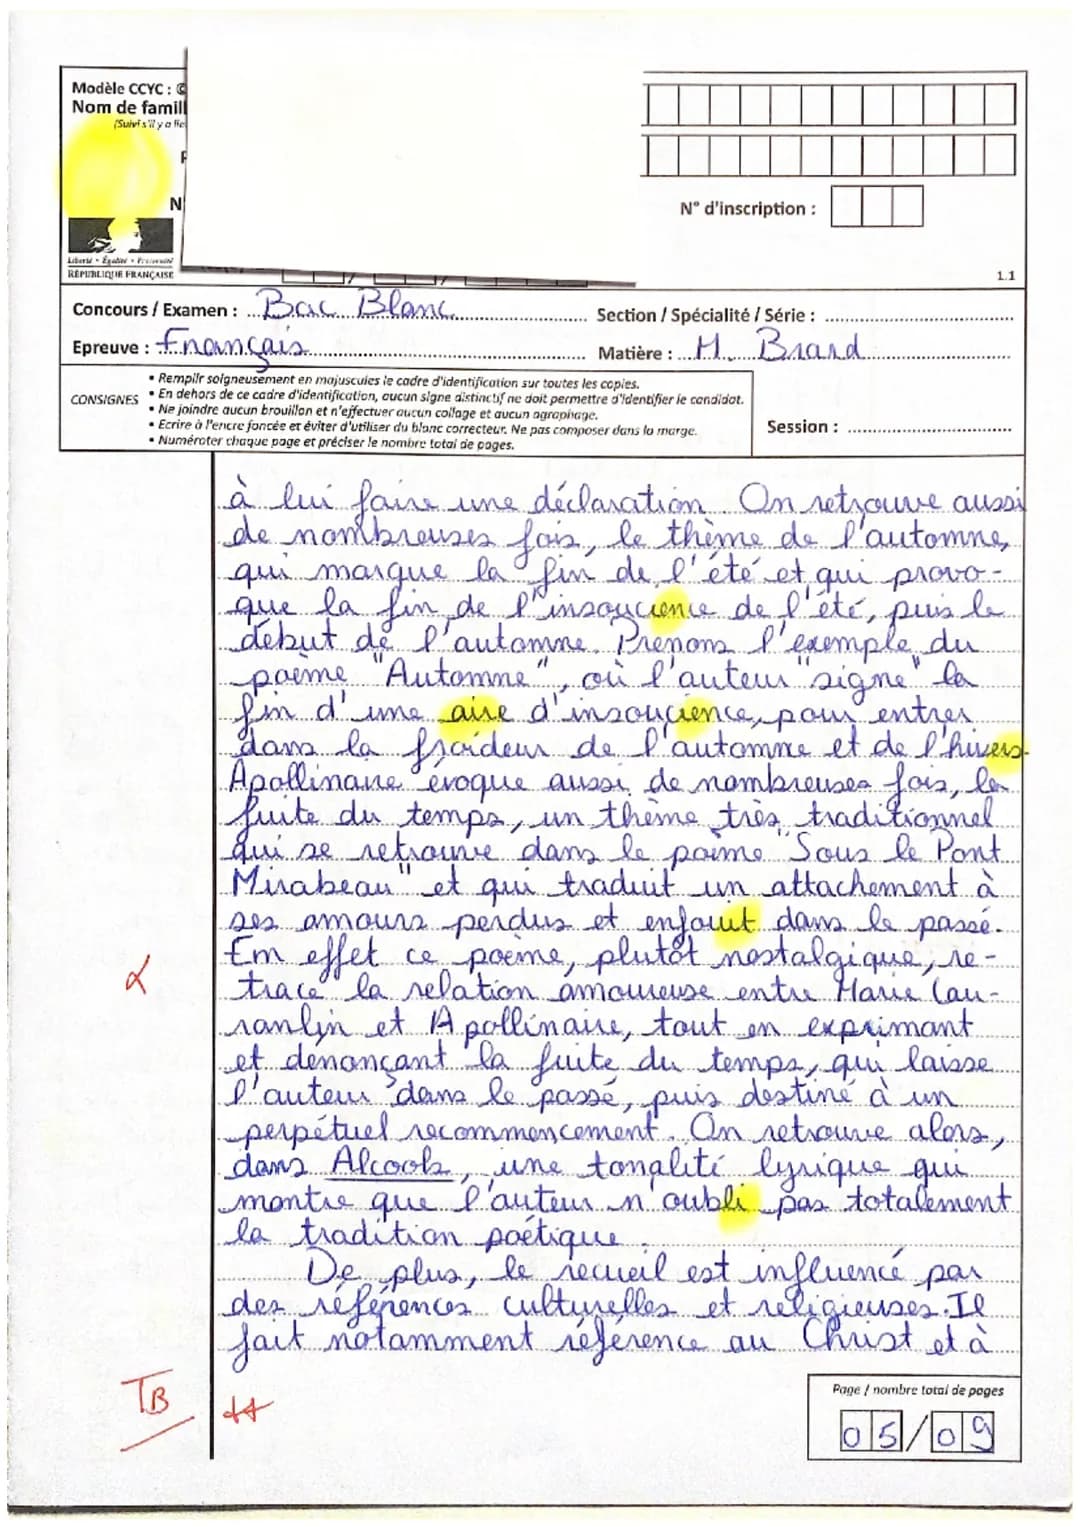 Modèle CCYC : ©
Nom de famill
(Suivi s'il y a lie
P
N
Liberté • Égalité • Fraternité
RÉPUBLIQUE FRANÇAISE
N° d'inscription :
1.1
Concours / Examen : Bac Blanc
Section / Spécialité / Série :
Epreuve : Français
Matière : M. Brard
CONSIGNES
• Remplir soigneusement en majuscules le cadre d'identification sur toutes les copies.
• En dehors de ce cadre d'identification, aucun signe distinctif ne doit permettre d'identifier le candidat.
• Ne joindre aucun brouillon et n'effectuer aucun collage et aucun agraphage.
• Ecrire à l'encre foncée et éviter d'utiliser du blanc correcteur. Ne pas composer dans la marge.
• Numéroter chaque page et préciser le nombre total de pages.
Session :
à lui faire une déclaration. On retrouve aussi
de nombreuses fois, le thème de l'automne,
qui marque la fin de l'été et qui provo-
que la fin de l'insoucience de l'été, puis le
début de l'automne. Prenons l'exemple du
poème "Automne", où l'auteur "signe" la
fin d'une aire d'insoucience, pour entrer
dans la froideur de l'automne et de l'hivers.
Apollinaire évoque aussi de nombreuses fois, la
fuite du temps, un thème très traditionnel
qui se retrouve dans le poème "Sous le Pont
Mirabeau" et qui traduit un attachement à
ses amours perdus et enfouit dans le passé.
En effet ce poème, plutôt nostalgique, re-
trace la relation amoureuse entre Marie Lau-
ranlin et Apollinaire, tout en exprimant
et denonçant la fuite du temps, qui laisse
l'auteur dans le passé, puis destiné à un
perpétuel recommencement. On retrouve alors,
dans Alcools, une tonalité lyrique qui
montre que l'auteur n'oubli pas totalement
la tradition poétique.
De plus, le recueil est influencé par
des références culturelles et religieuses. Il
fait notamment référence au Christ et à
TB
++
Page / nombre total de pages
05/09